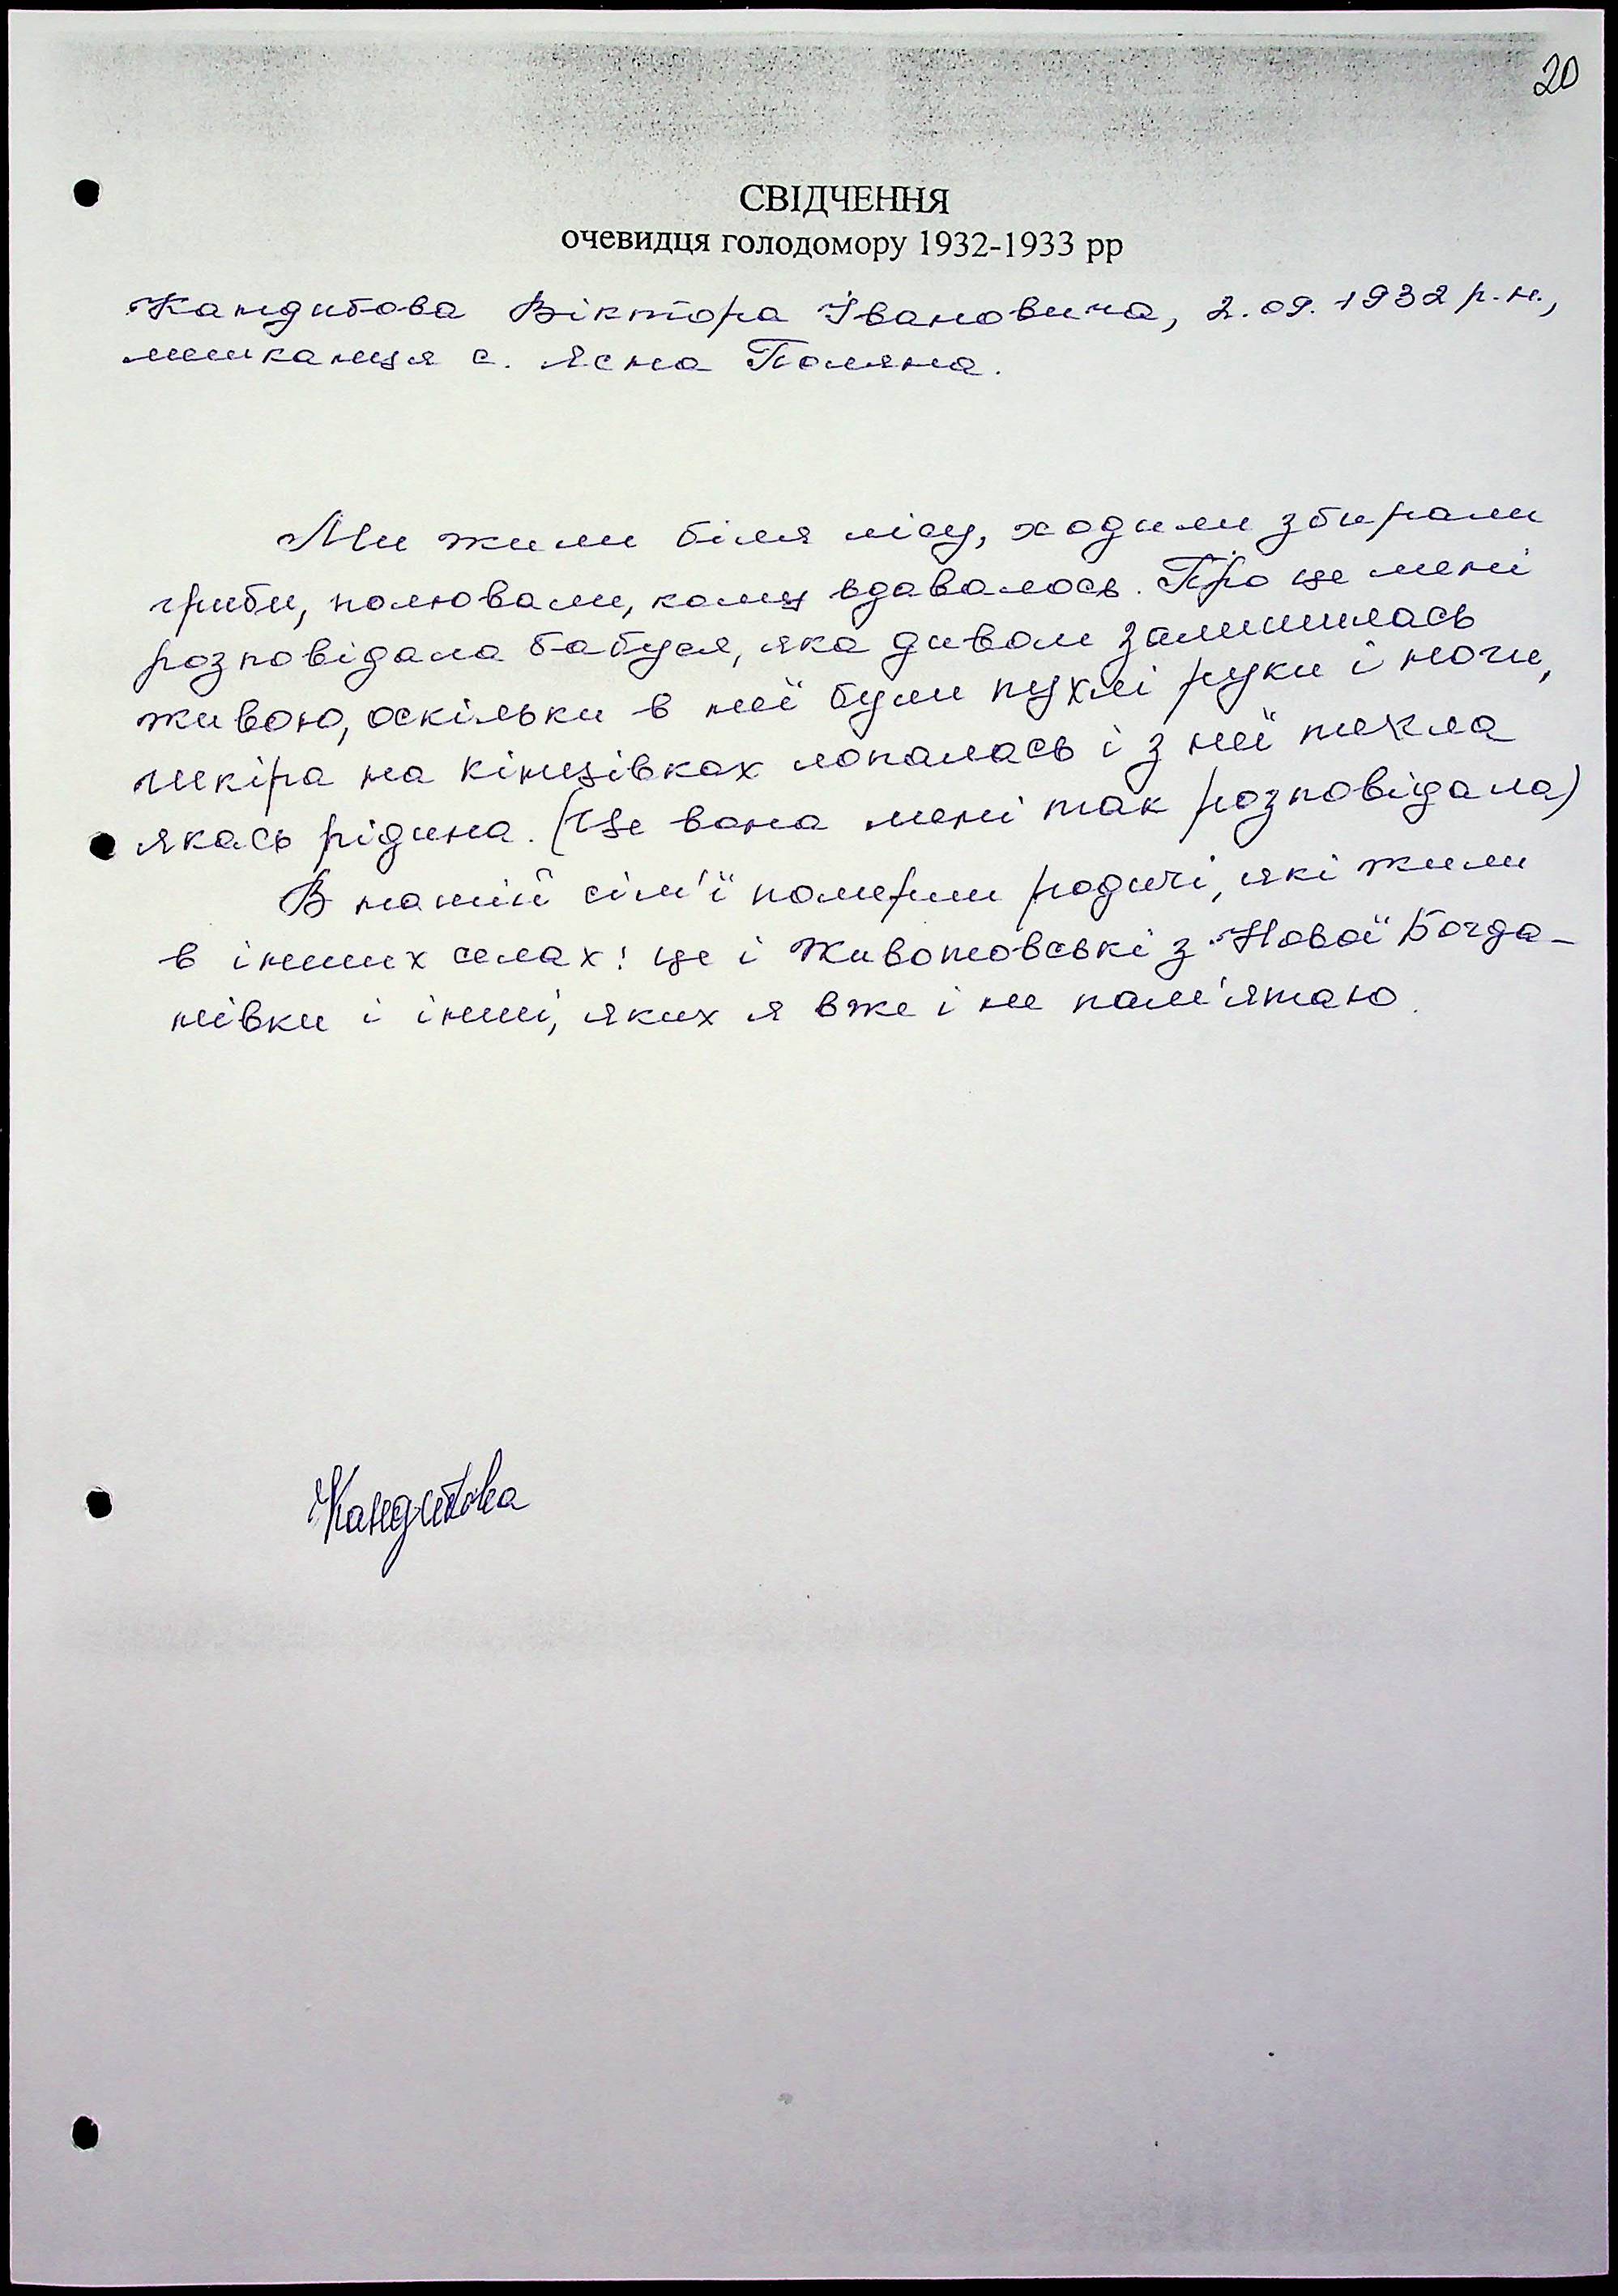 20
СВІДЧЕННЯ
очевидця голодомору 1932-1933 рр
Кандибова Віктора Івановича, 2.09.1932 р.н.,
мешканця с. Ясна Поляна.
Ми жили біля лісу, ходили збирали
гриби, полювали, кому вдавалось. Про це мені
розповідала бабуся, яка дивом залишилась
живою, оскільки в неї були пухлі руки і ноги,
шкіра на кінцівках лопалась і з неї текла
якась рідина. (Це вона мені так розповідала)
В нашій сім'ї померли родичі, які жили
в інших селах: це і Животовські з Нової Богда-
нівки і інші, яких я вже і не пам'ятаю.
Кандибова